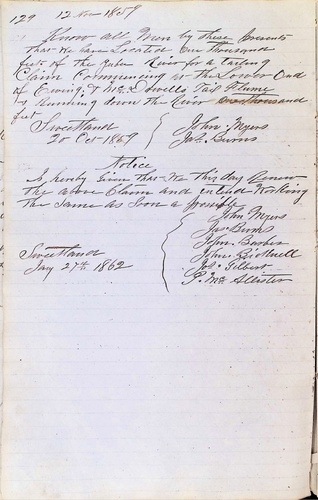 129 12 Nov 1859
Know all Men by these Presents
that We have Located One Thousand
feet of the Yuba River for a Tailing
Claim Commencing at the Lower End
of Ewing & McDowells Tail Flume
& Running down the River one thousand
feet
Sweetland John Myers
20 Oct 1859 Jas Burns
Notice
Is hereby Given that We this day Renew
the above Claim and intend Working
the Same as Soon as possible
John Myers
Jas Burns
John Barber
Sweetland John
Jany 27th 1862 Jos Gilbert
P. McAllister